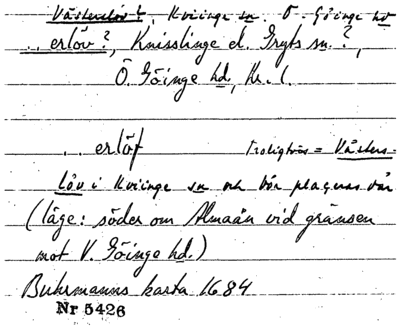 Västerlöv?, Kviinge sn. Ö. Göinge hd
.. erlöv?, Knisslinge el. Gryts sn.?,
Ö. Göinge hd, Kr. l.
.. erlöf troligtvis = Västers-
löv i Kviinge sn och bör placeras där
(läge: söder om Almaån vid gränsen
mot V. Göinge hd.)
Buhrmanns karta 1684
Nr 5426